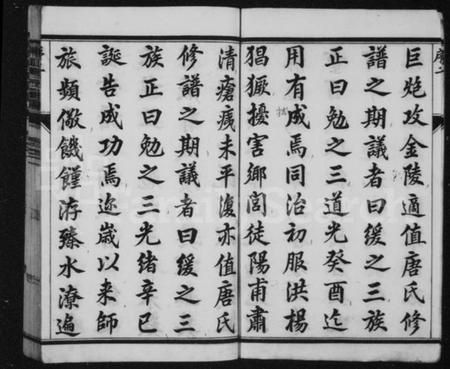 序二
巨炮攻金陵適值唐氏修
譜之期議者曰緩之三族
正曰勉之三道光癸酉迄
用有成焉同治初服洪楊
猖獗擾害鄉閭徒陽甫肅
清瘡痍未平復亦值唐氏
修譜之期議者曰緩之三
族正曰勉之三光緒辛巳
誕告成功焉迩歲以来師
旅頻儆饑饉洊臻水潦遍